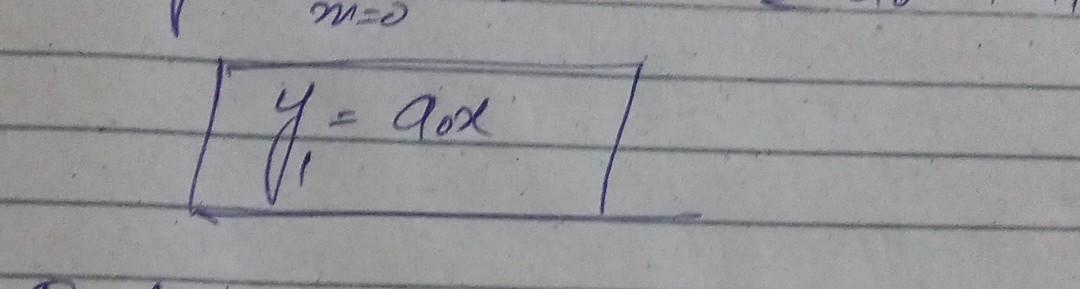 m=0
y₁ = a₀x